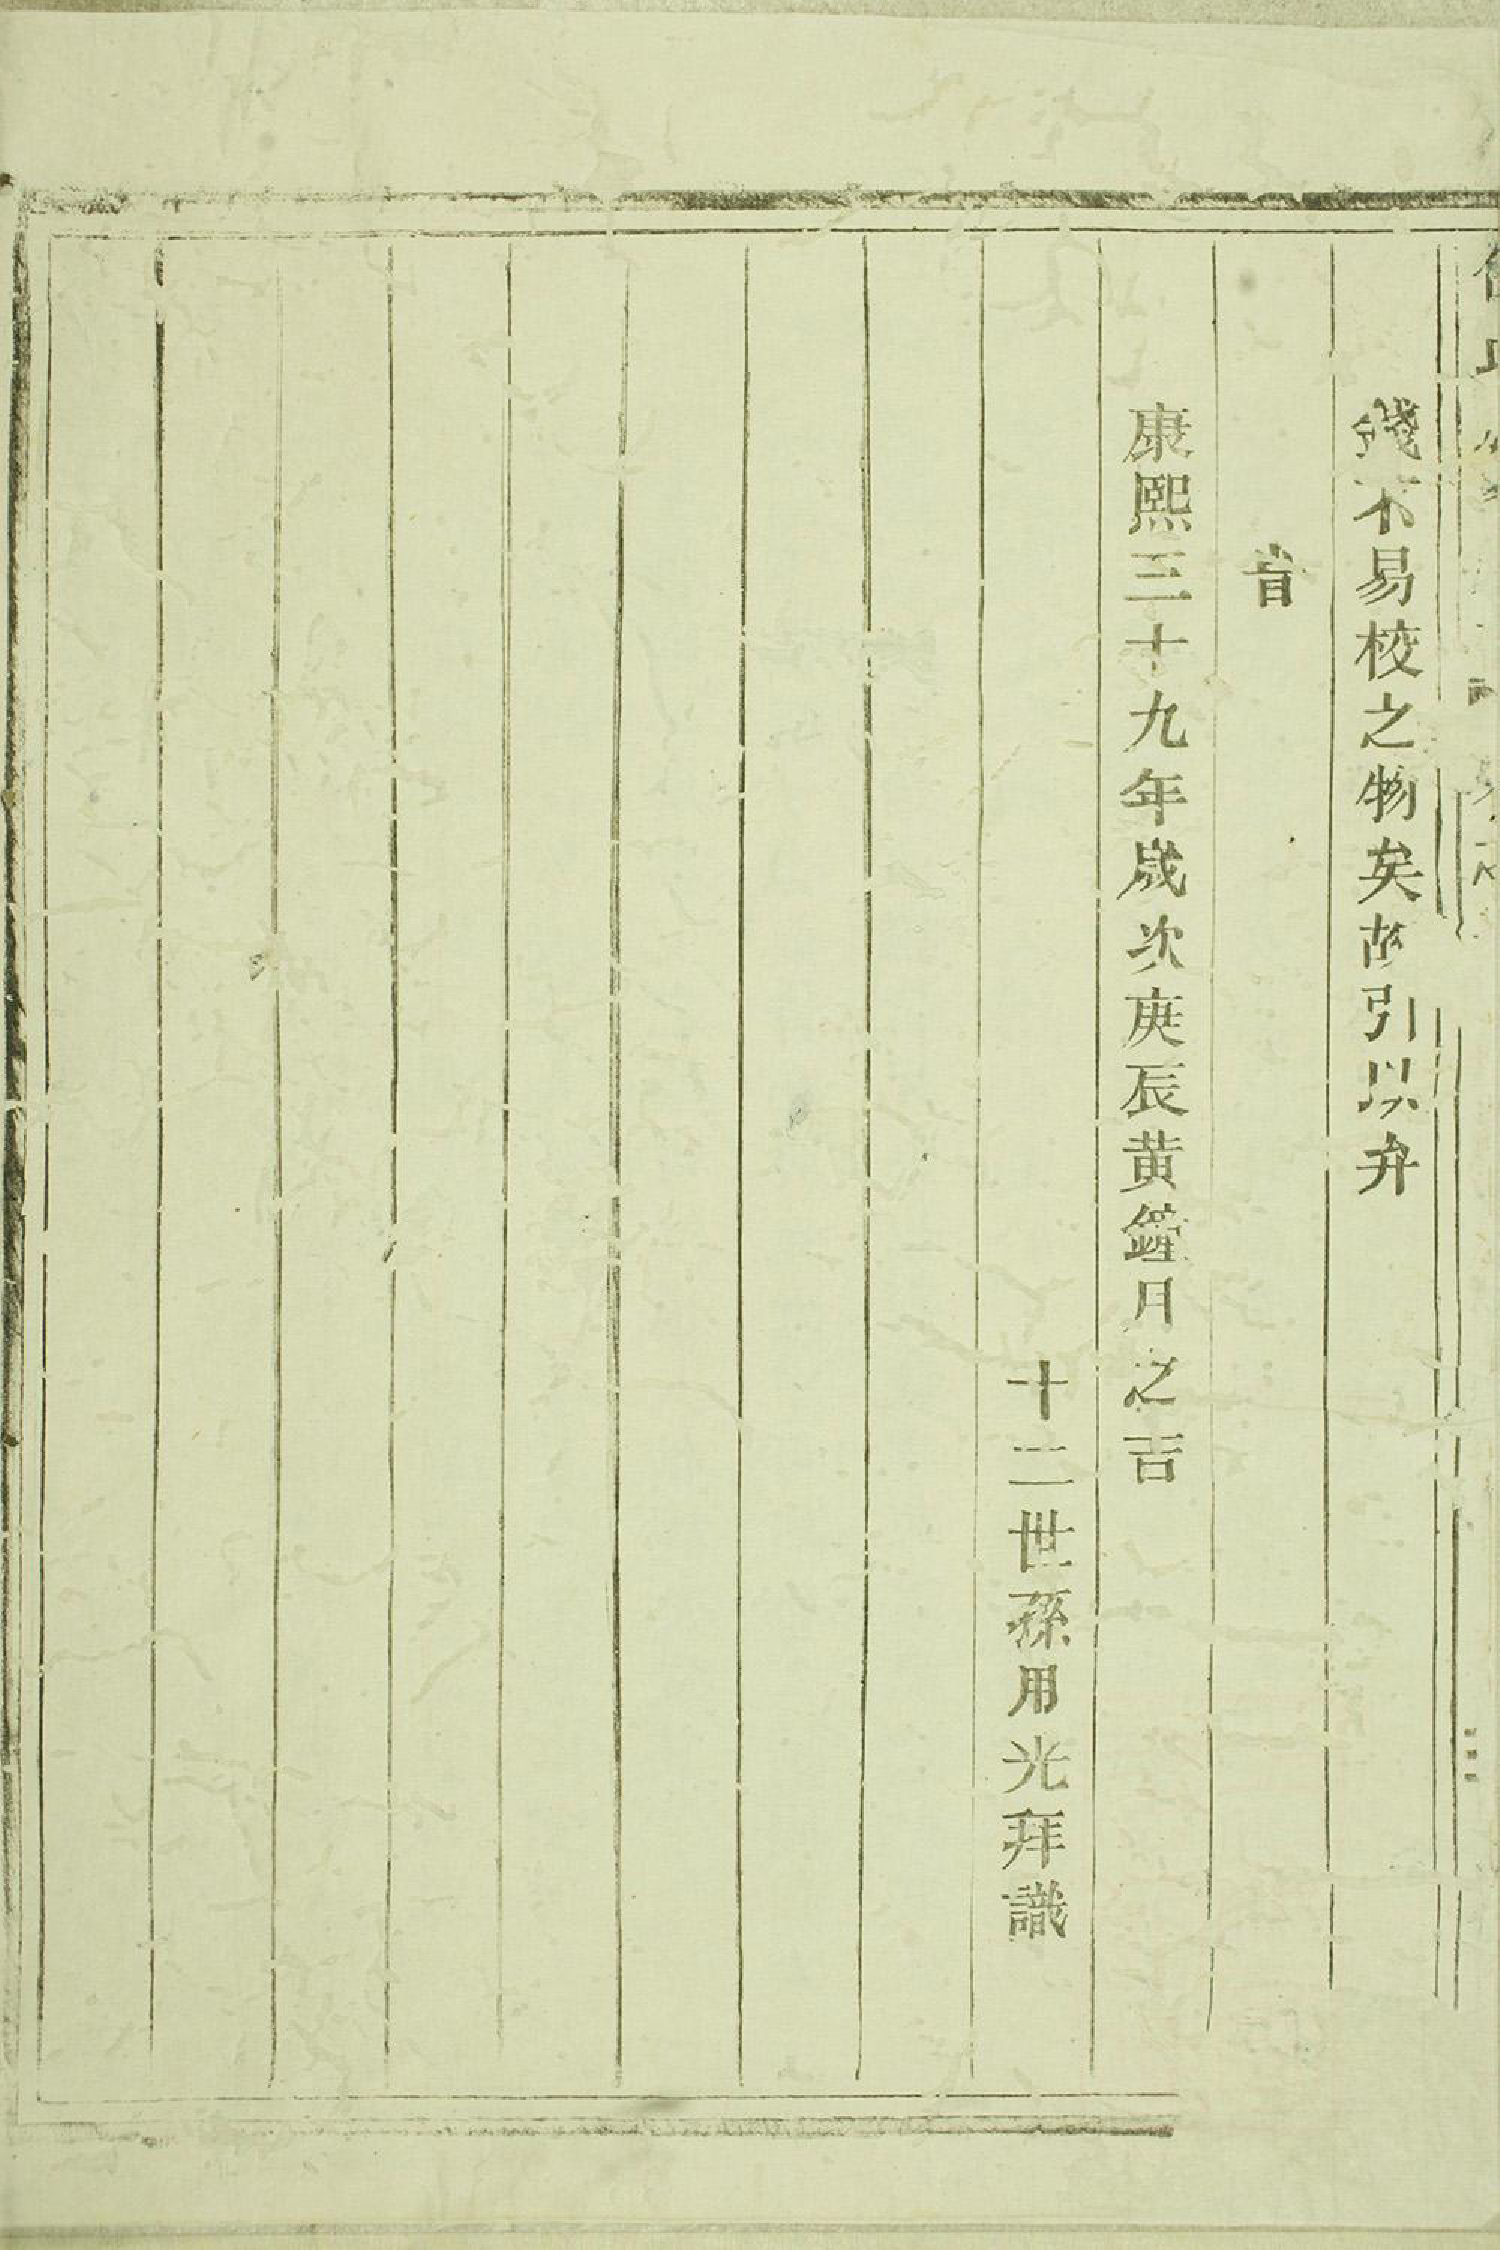 錢不易校之物矣故引以弁
首
康熙三十九年歲次庚辰黃鐘月之吉
十二世孫用光拜識